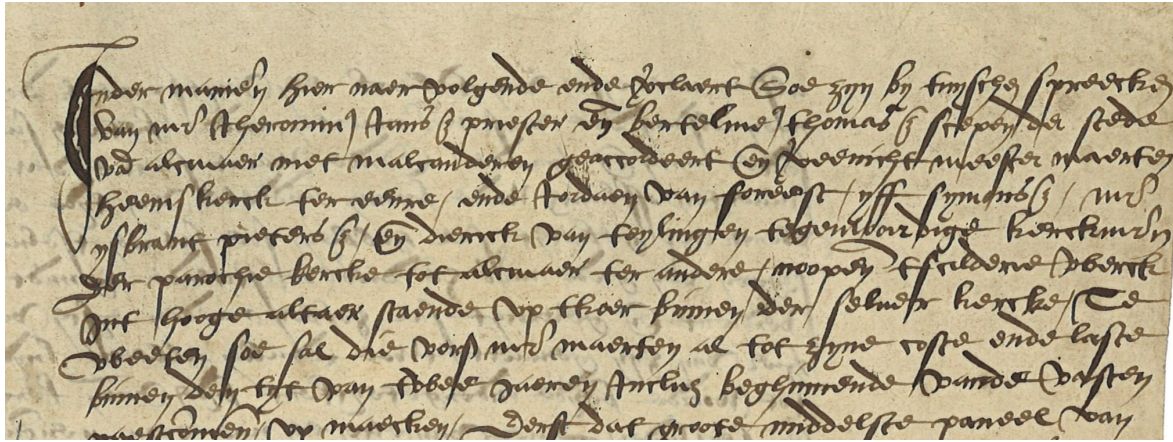 Inder manieren hier naer volgende ende verclaert Soe zyn by tusschen spreecken
van mr Jheronimus Jans z priester en bertelmeus thomas z scepen der stede
van alcmaer met malcanderen geaccordeert en vereenicht meester maerten
heemskerck ter eenre / ende Jordaen van foreest / yff symons z / mr
ysbrant pieters z / en dierick van teylingen tegenwoirdige kerckmrn
der parochie kercke tot alcmaer ter andere / noopen tscilderie werck
int hooge altaer staende up tkoer binnen der selver kercke / Te
weeten soe sal die vors mr maerten al tot zyne coste ende laste
binnen den tyt van twee Jaeren Incluz beghinnende vande vasten
naestcomen up maecken / Eerst dat groote middelste paneel van